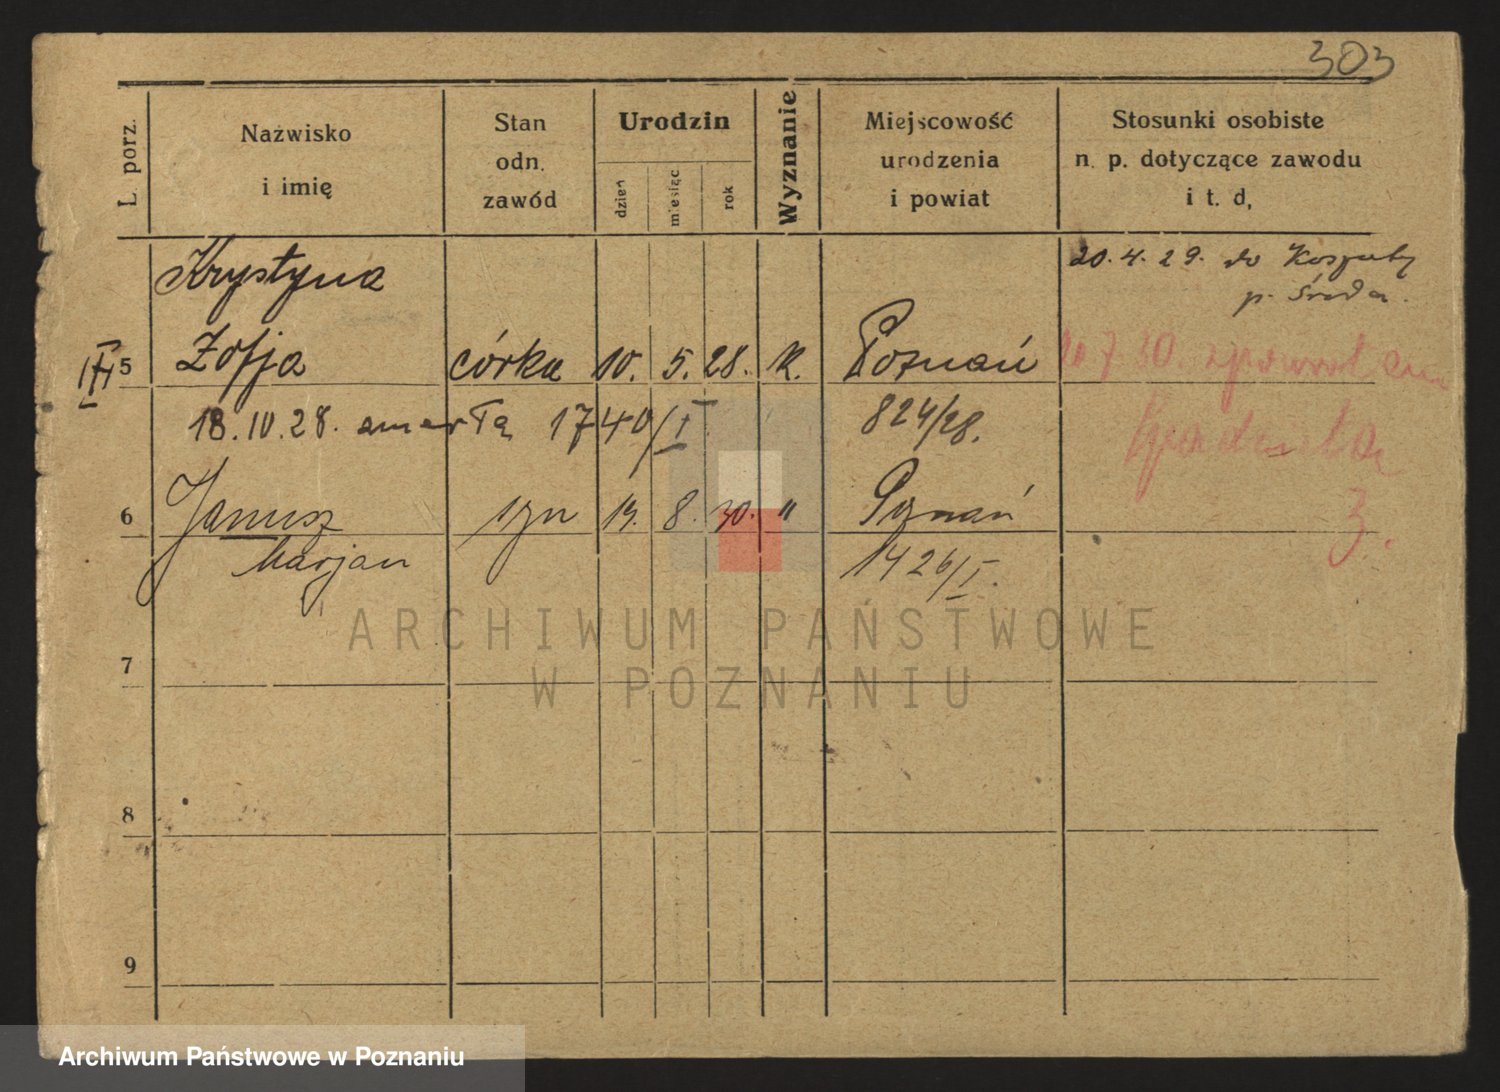 303
L. porz.
Nazwisko
i imię
Stan
odn.
zawód
Urodzin
dzień
miesiąc
rok
Wyznanie
Miejscowość
urodzenia
i powiat
Stosunki osobiste
n. p. dotyczące zawodu
i t. d,
Krystyna
20. 4. 29. do
p. Środa.
5 Zofja córka 10. 5. 28. k. Poznań
7. 30.
18. 10. 28. zmarłą 1740/I 824/28.
6 Janusz syn 13. 8. 30. " Poznań
3.
Marjan 1426/I.
ARCHIWUM PAŃSTWOWE
W POZNANIU
7
8
9
Archiwum Państwowe w Poznaniu